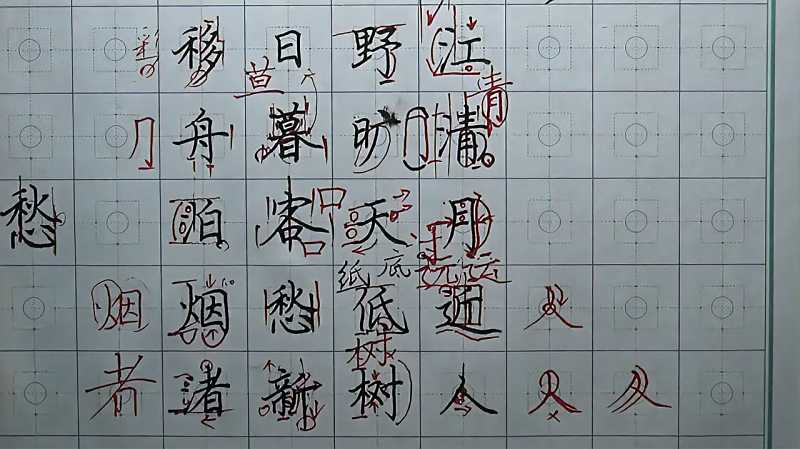 愁
烟
者
移舟泊烟渚
日暮客愁新
野旷天低树
江清月近人
青
纸底
树